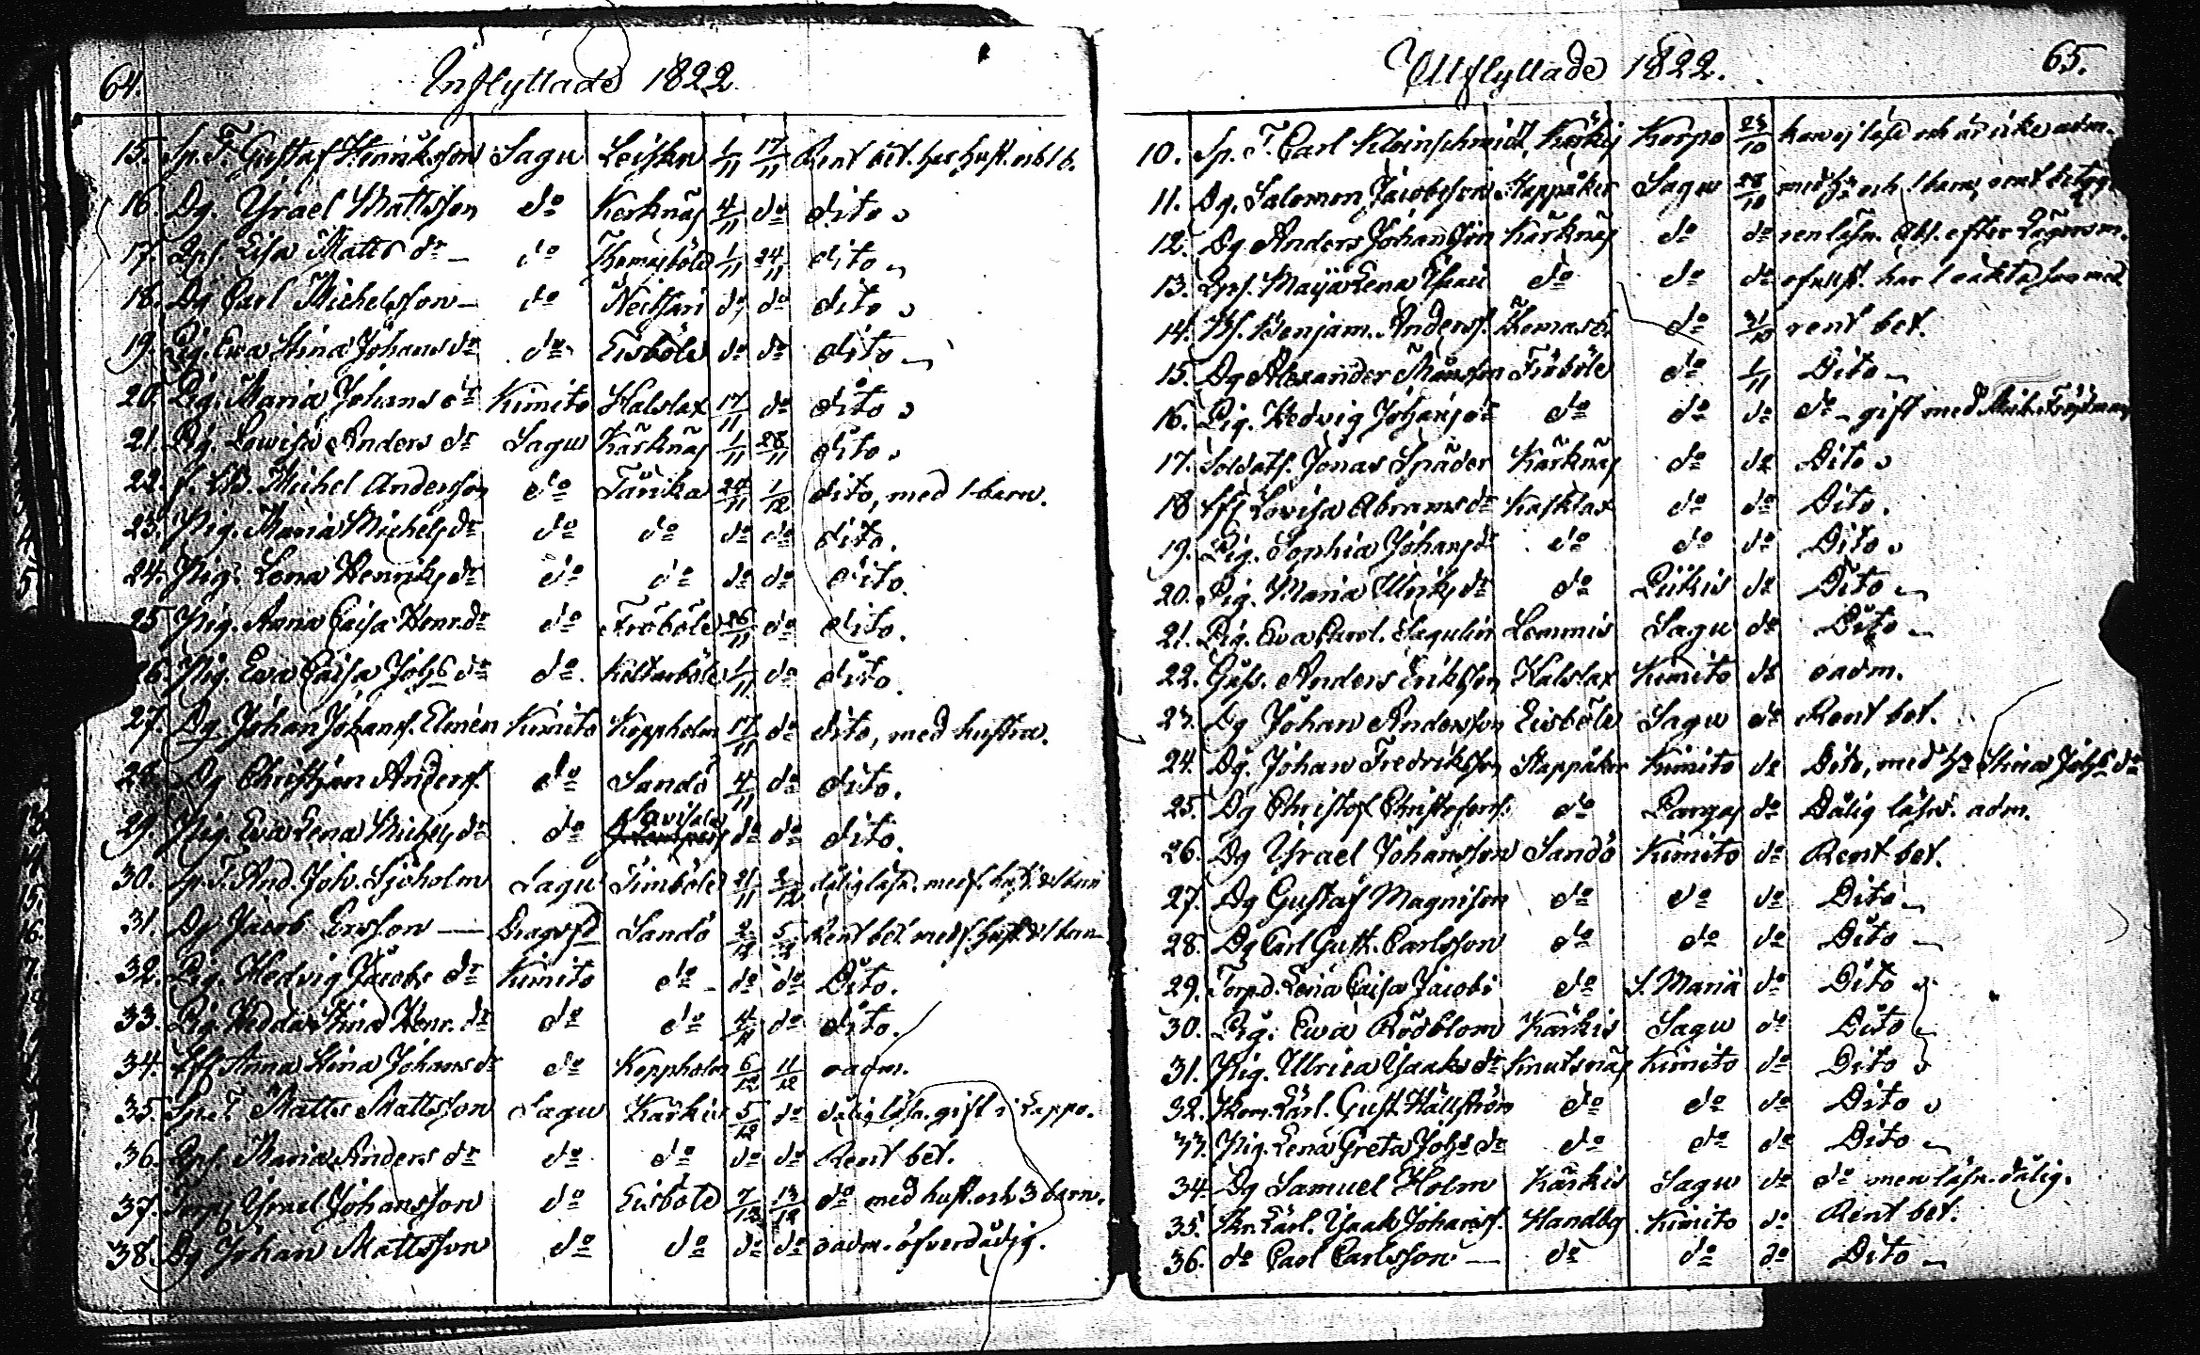 64. Inflyttade 1822
15. Sp. T. Gustaf Henriksson Sagu Leisku 1/11 17/11 Rent bet. har hust. och 1 b.
16. Dg. Ysrael Mattsson do Kerknäs 4/11 do dito
17. Lisa Matts dr do Themasböle 1/11 24/11 dito
18. Dg Carl Michelsson do Neistari do do dito
19. Pig. Ewa Stina Johans dr do Eisböle do do dito
20. Pig. Maria Johans dr Kimito Kalslax 17/11 do dito
21. Pig. Lowisa Anders dr Sagu Kärknäs 1/11 28/11 dito
22. Michel Andersson do Tärika 24/11 1/12 dito, med 1 barn.
23. Pig. Maria Michels dr do do do do dito.
24. Pig. Lena Henriks dr do do do do dito.
25. Pig. Anna Caisa Henr. dr do Fröböle 26/11 do dito.
26. Pig. Ewa Caisa Johs dr do 1/11 do dito.
27. Dg. Johan Johans. Elmén Kimito Koppholm 17/11 do dito, med hustru.
28. Dg Christian Anders. do Sandö 4/11 do dito.
29. Pig. Ewa Lena Michels dr do do do dito.
30. Sp. T. And. Joh. Sjöholm Sagu Fimböle 21/11 2/12 dålig läsn. med hust. & 1 barn
31. Dg Jacob Ersson Dragsfd Sandö 2/12 5/12 Rent bet. med hust. & 1 barn
32. Pig. Hedvig Jacobs dr Kimito do do do Dito.
33. Pig. Hedda Stina Henr. dr do do 4/12 do dito.
34. Anna Stina Johans dr do Koppholm 6/12 11/12 oadm.
35. Matts Mattsson Sagu Kärkis 5/12 do dålig läsn. gift i
36. Maria Anders dr do do do do Rent bet.
37. Torp. Ysrael Johansson do Eisböle 7/12 13/12 do med hust. och 3 barn.
38. Dg Johan Mattsson do do do do oadm. öfverdådig.
Utflyttade 1822. 65.
10. Sp. T. Carl Kleinschmidt Kärkis Korpo 23/10 kan ej läsa och är icke adm.
11. Dg. Salomon Jacobsson Stappåker Sagu 28/10 med och 1 barn, rent betyg
12. Dg Anders Johansson Kärknäs do do ren läsn.
13. Maja Lena Ysaci do do do
14. Benjam. Anders. do 31/10 rent bet.
15. Dg Alexander Månsson Fröböle do 1/11 Dito
16. Pig. Hedvig Johans dr do do do do gift med
17. Soldats. Jonas Späder Kärknäs do do Dito
18 Lovisa Abrams dr Kalklax do do Dito.
19. Pig. Sophia Johans dr do do do Dito
20. Pig. Maria Ulriks dr do Piikis do Dito
21. Pig. Ewa Carol. Sagulin Lemnis Sagu do Dito
22. Anders Eriksson Kalslax Kimito do oadm.
23. Dg Johan Andersson Eisböle Sagu do Rent bet.
24. Dg. Johan Fredriksson Stappåker Kimito do Dito, med Stina Johs dr
25. Dg Christof Christofers. do Pargas do Dålig läsn. adm.
26. Dg Ysrael Johansson Sandö Kimito do Rent bet.
27. Dg Gustaf Magnisson do do do Dito
28. Dg Carl Gust. Carlsson do do do Dito
29. Torp.d. Lena Caisa Jacobs do S. Mariä do Dito
30. Pig. Ewa Rödblom Kärkis Sagu do Dito
31. Pig. Ulrica Ysaaks dr Knutsnäs Kimito do Dito
32. Gust. Hällström do do do Dito
33. Pig. Lena Greta Johs dr do do do Dito
34. Dg Samuel Holm Kärkis Sagu do do men läsn. dålig.
35. Ysaak Johans. Kimito do Rent bet.
36. do Carl Carlsson do do do Dito